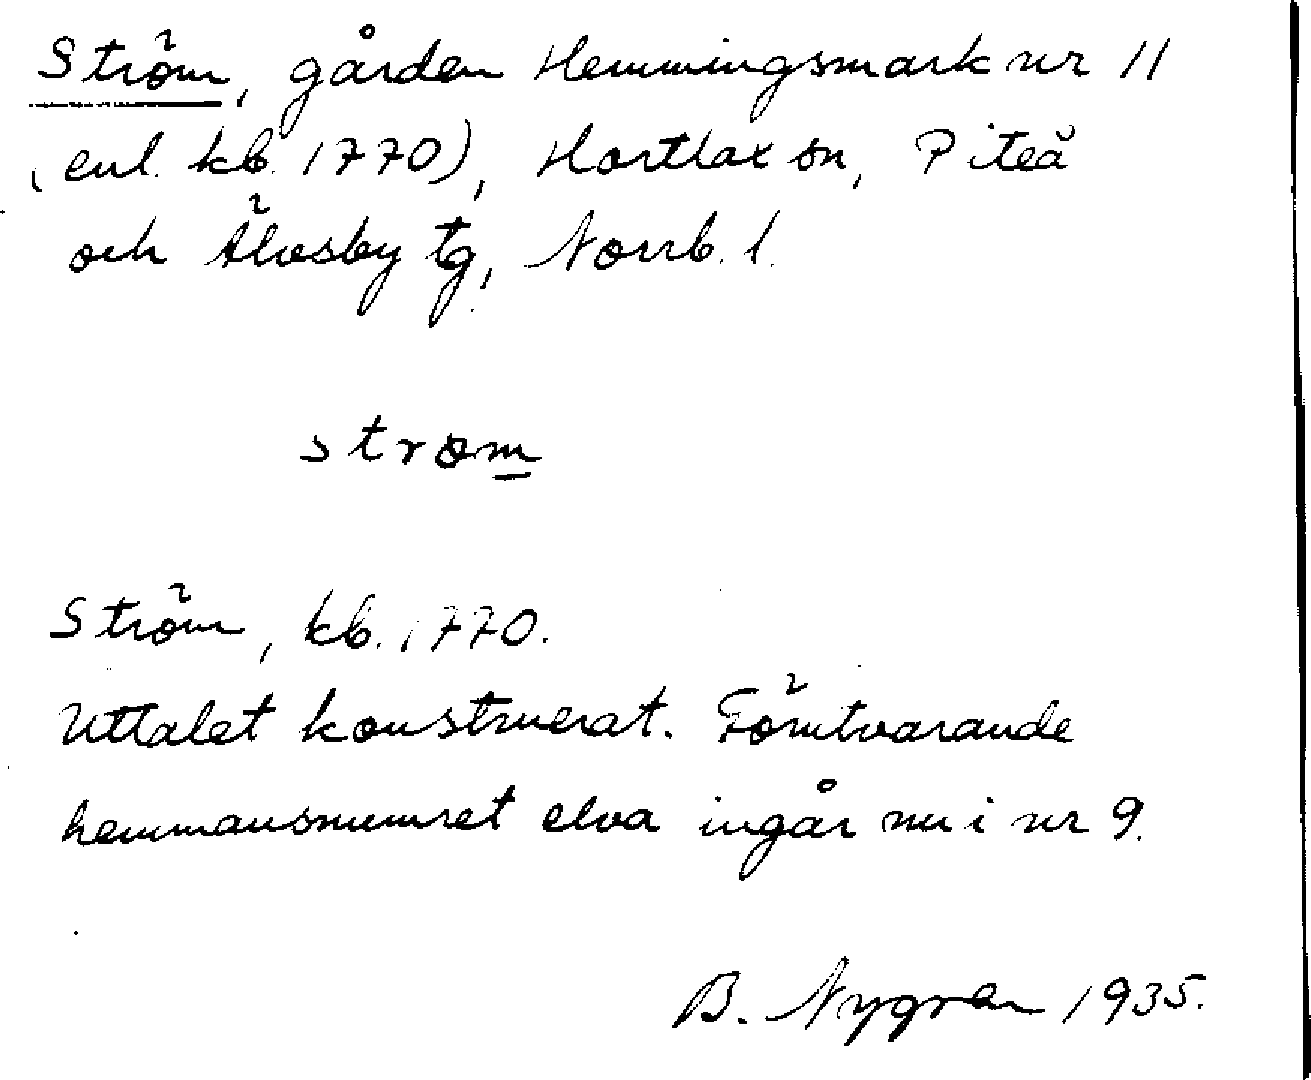 Ström, gården Hemmingsmark nr 11
(enl. kb. 1770), Hortlax sn, Piteå
och Älvsby tg, Norrb. l.
strøm
Ström, kb. 1770.
Uttalet konstruerat. Förutvarande
hemmansnumret elva ingår nu i nr 9.
B. Nygren 1935.